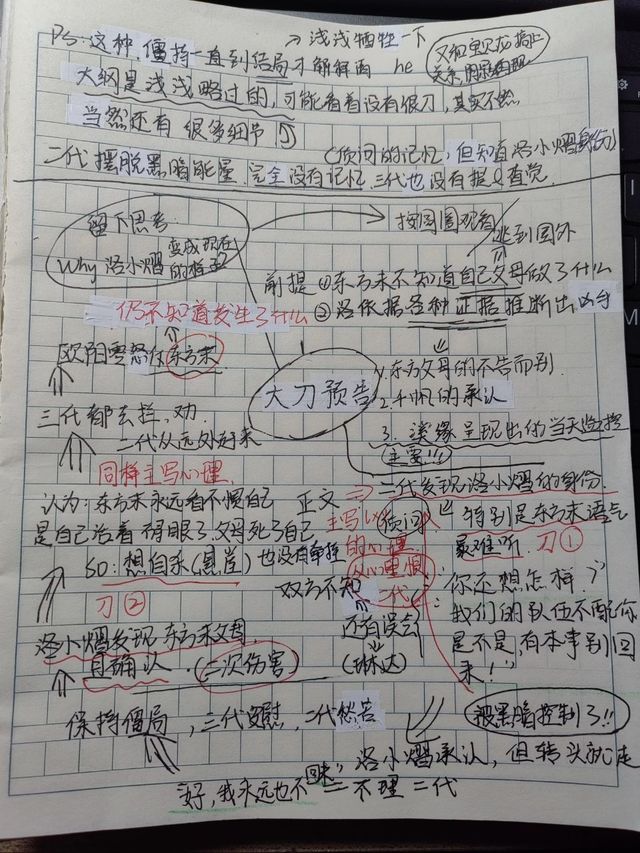 PS：这种僵持一直到结局才解解两 he
→浅浅牺牲一下
大纲是浅浅略过的，可能看着没有很刀，其实不然
当然还有很多细节
二代摆脱黑暗能量 完全没有记忆 三代也没有提&直觉
(质问的记忆，但知道洛小熠身份)
留下思考
Why 洛小熠变成现在的样子
按圆圈观看
逃到国外
前提 ①东方末不知道自己父母做了什么
②洛依据各种证据推断出凶手
仍不知道发生了什么
欧阳零怒怼东方末
大刀预告
1、东方父母的不告而别
2、千帆的承认
3、溪缘呈现出的当天监控
主要!!!
三代都去拦，劝
二代从远处赶来
同样主写心理
二代发现洛小熠的身份
认为：东方末永远看不惯自己
是自己活着碍眼了，父母死了自己
SO：想自杀(悬崖)也没有牵挂
刀②
正文
主写心的心理
质问
从心里恨二代
特别是东方末语气最难听 刀①
双方不知
还有误会
(琳达)
"你还想怎样？
我们的队伍不配你是不是，有本事别回来！"
洛小熠发现东方末父母
自确认 (二次伤害)
被黑暗控制了!!
保持僵局，三代安慰，二代愁苦
洛小熠承认，但转头就走
"好，我永远也不回来" 不理二代